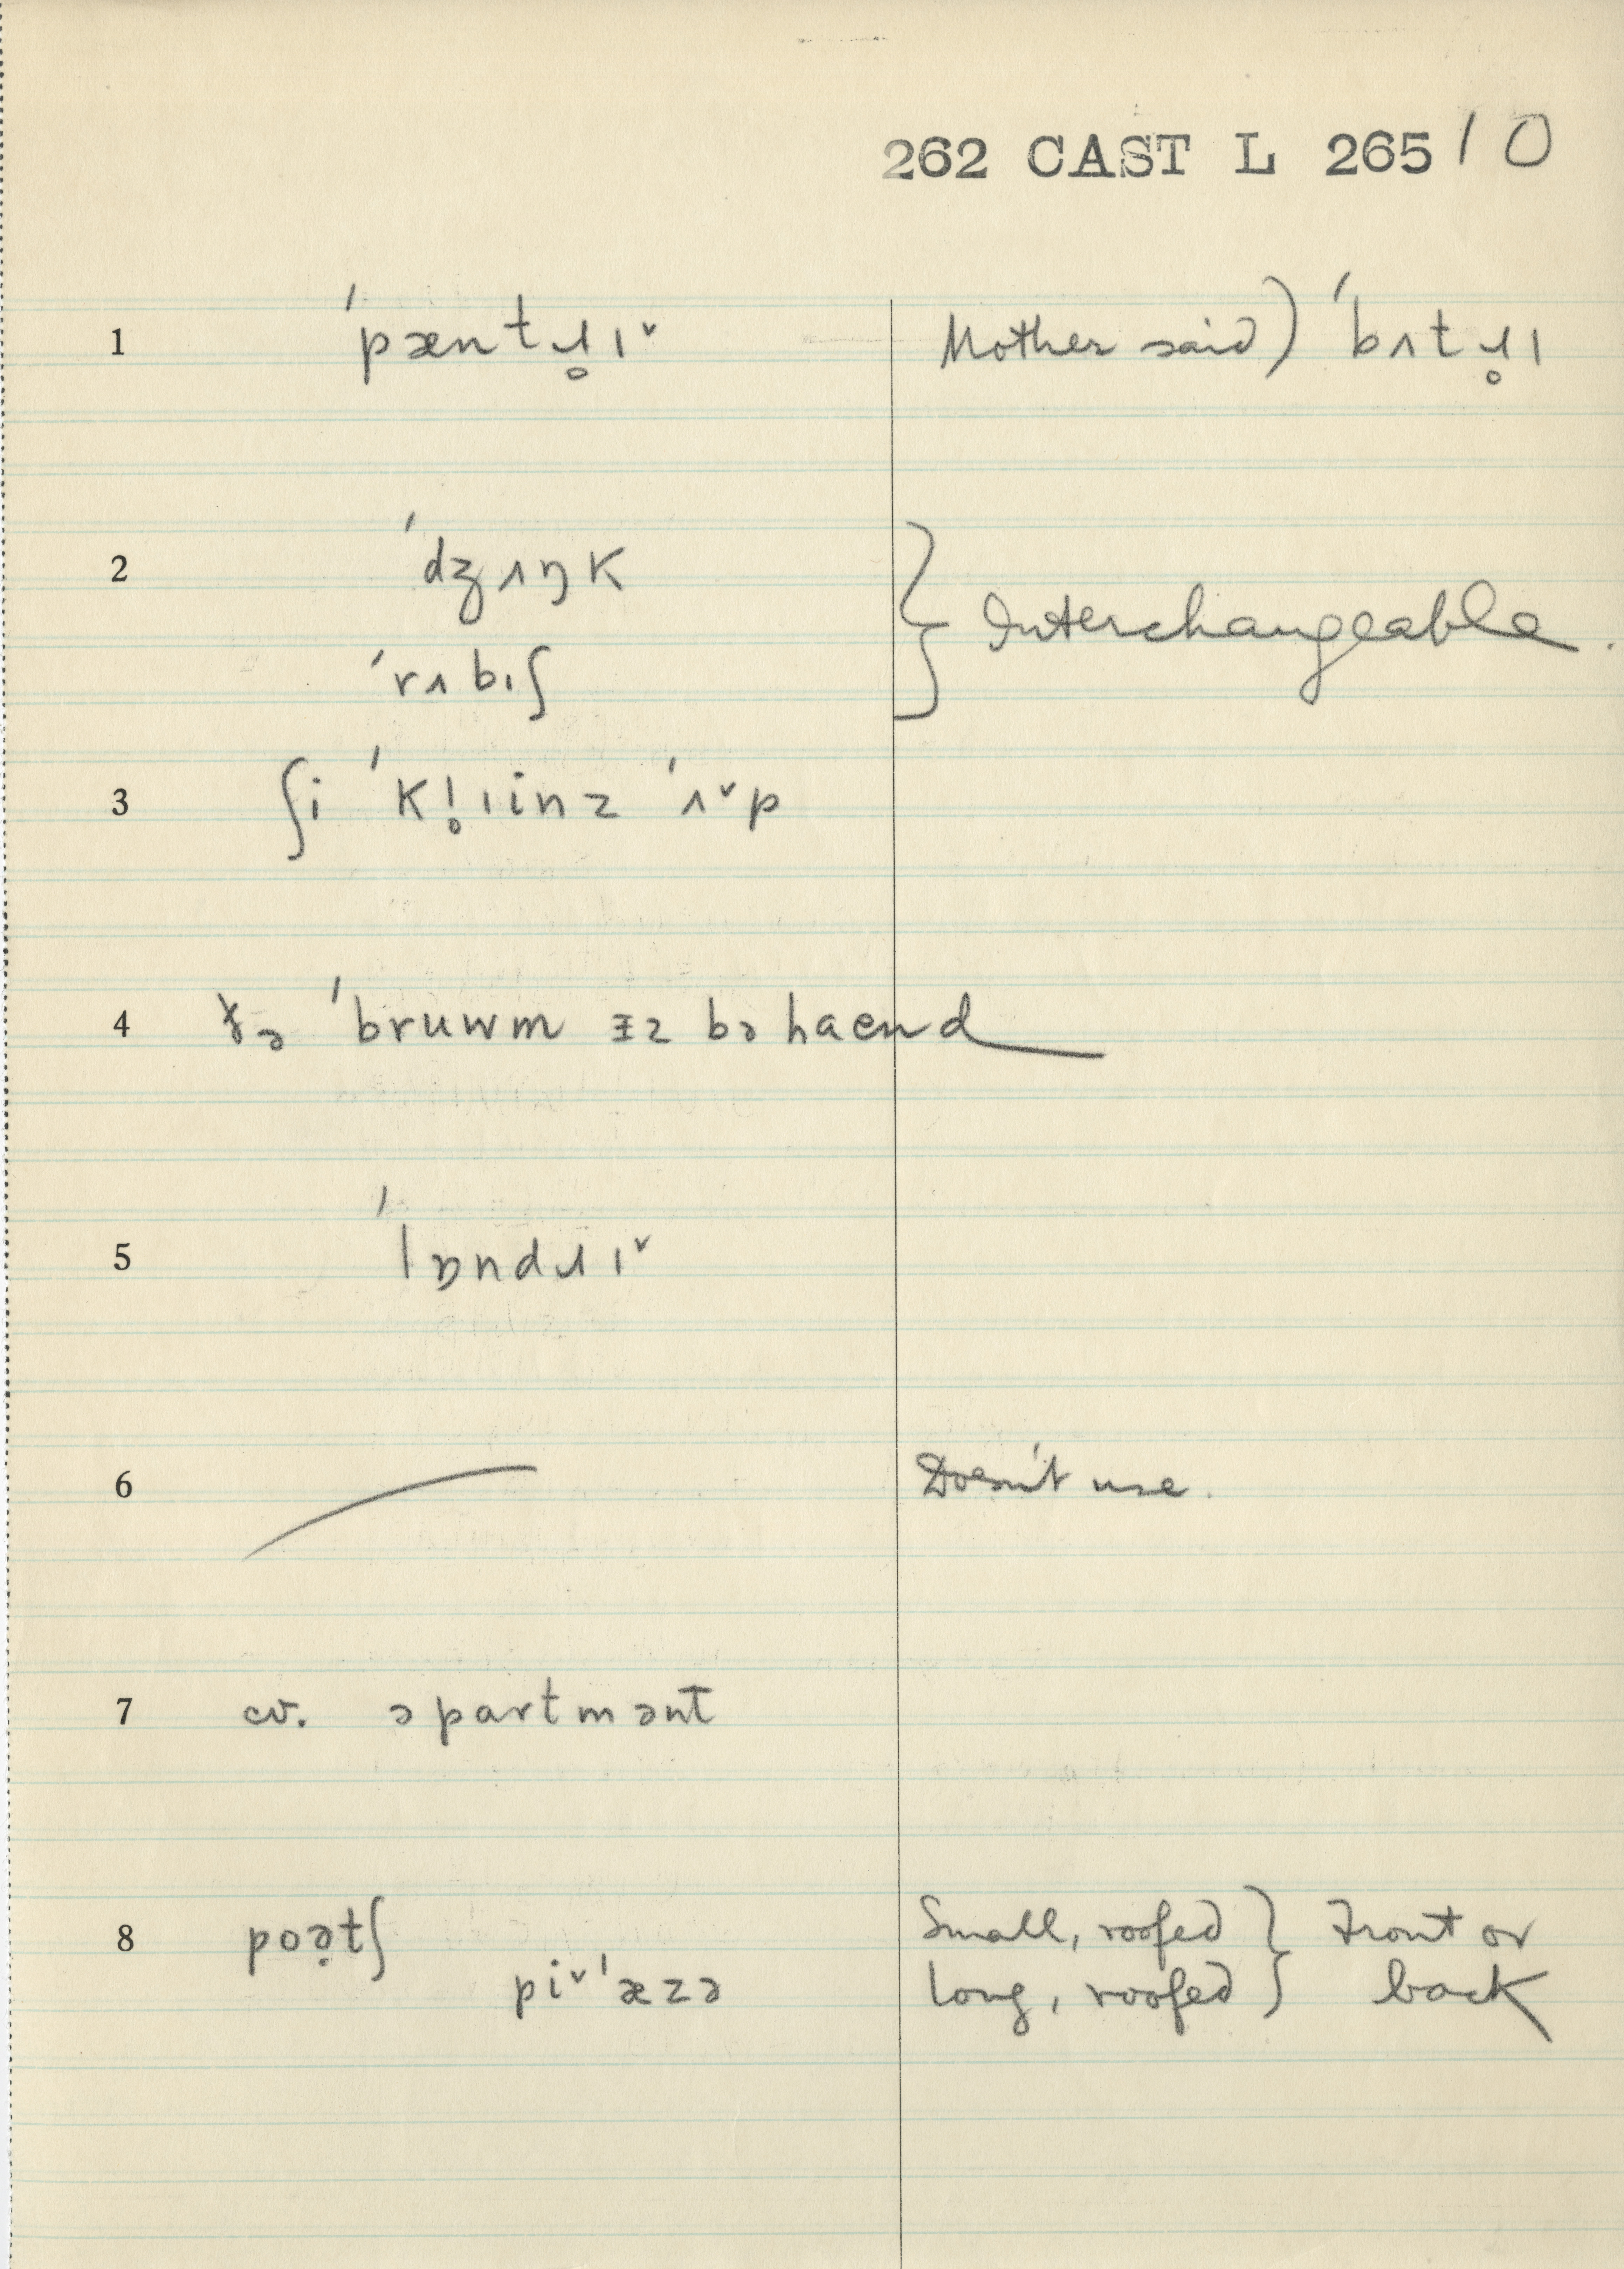 262 CAST L 265 10
1 ˈpæntɹ̥ɪˇ Mother said) ˈbʌtɹ̥ɪ
2 ˈdʒʌŋk } Interchangeable.
ˈrʌbɪʃ
3 ʃi ˈkl̥ɪinz ˈʌˇp
4 ðə ˈbruwm ɪz bəhaend
5 ˈlɒndɹɪˇ
6 Doesn't use.
7 cv. əpartmənt
8 poə̣tʃ Small, roofed } Front or
piˇˈæzə long, roofed } back